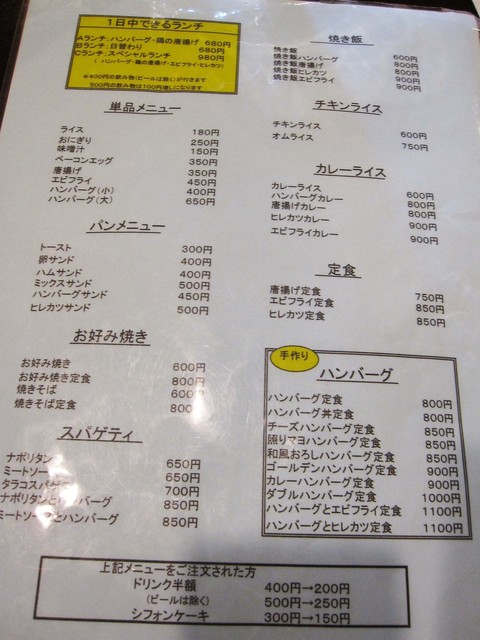 1日中できるランチ
Aランチ:ハンバーグ・鶏の唐揚げ 680円
Bランチ:日替わり 680円
Cランチ:スペシャルランチ 980円
(ハンバーグ・鶏の唐揚げ・エビフライ・ヒレカツ)
※400円の飲み物(ビールは除く)が付きます
500円の飲み物は100円増しになります
単品メニュー
ライス 180円
おにぎり 250円
味噌汁 150円
ベーコンエッグ 350円
唐揚げ 350円
エビフライ 450円
ハンバーグ(小) 400円
ハンバーグ(大) 650円
パンメニュー
トースト 300円
卵サンド 400円
ハムサンド 400円
ミックスサンド 500円
ハンバーグサンド 450円
ヒレカツサンド 500円
お好み焼き
お好み焼き 600円
お好み焼き定食 800円
焼きそば 600円
焼きそば定食 800
スパゲティ
ナポリタン 650円
ミートソー 650円
タラコスパゲ 700円
ナポリタンとハンバーグ 850円
ミートソースとハンバーグ 850円
焼き飯
焼き飯 600円
焼き飯ハンバーグ 800円
焼き飯唐揚げ 800円
焼き飯ヒレカツ 900円
焼き飯エビフライ 900円
チキンライス
チキンライス 600円
オムライス 750円
カレーライス
カレーライス 600円
ハンバーグカレー 800円
唐揚げカレー 800円
ヒレカツカレー 900円
エビフライカレー 900円
定食
唐揚げ定食 750円
エビフライ定食 850円
ヒレカツ定食 850円
手作り
ハンバーグ
ハンバーグ定食 800円
ハンバーグ丼定食 800円
チーズハンバーグ定食 850円
照りマヨハンバーグ定食 850円
和風おろしハンバーグ定食 850円
ゴールデンハンバーグ定食 900円
カレーハンバーグ定食 900円
ダブルハンバーグ定食 1000円
ハンバーグとエビフライ定食 1100円
ハンバーグとヒレカツ定食 1100円
上記メニューをご注文された方
ドリンク半額 400円→200円
(ビールは除く) 500円→250円
シフォンケーキ 300円→150円